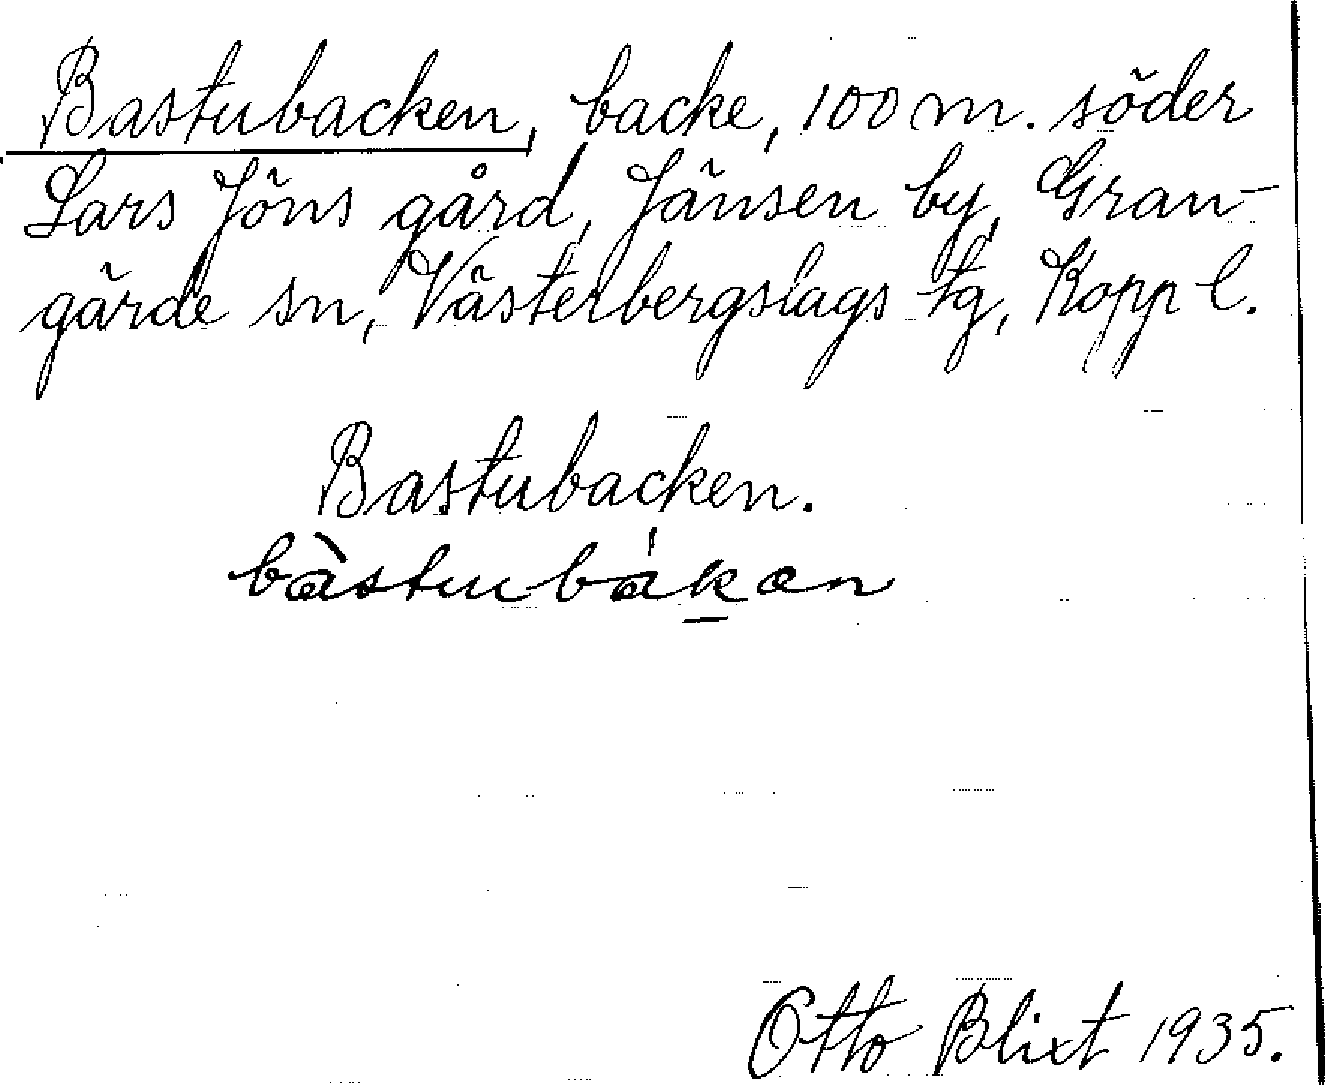 Bastubacken, backe, 100 m. söder
Lars Jöns gård, Jänsen by, Gran-
gärde sn, Västerbergslags tg, Kopp l.
Bastubacken.
bàstubákan
Otto Blixt 1935.